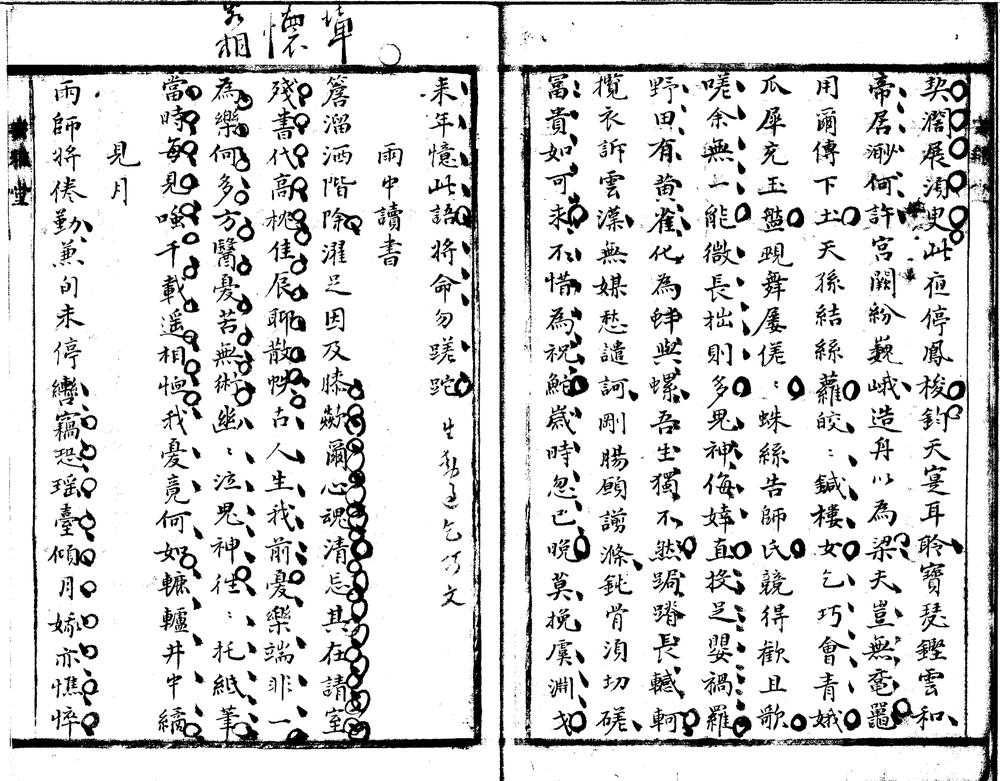 契濶展須臾此夜停鳳梭鈞天寔耳聆寶瑟鏗雲和
帝居渺何許宮闕紛巍峨造舟以為梁夫豈無黿鼉
用爾傳下土天孫結絲蘿皎〻鍼樓女乞巧會青娥
瓜犀充玉盤覡舞屢傞〻蛛絲告師氏競得歡且歌
嗟余無一能微長拙則多鬼神侮婞直投足嬰禍羅
野田有黃雀化為蜯與螺吾生獨不然跼蹐長轗軻
攬衣訴雲漢無媒愁譴訶剛腸願謭滌鈍骨須切磋
富貴如可求不惜為祝鮀歲時忽已晚莫挽虞淵戈
来年憶此語將命勿蹉跎
生動過乞巧文
雨中讀書
簷溜洒階除濯足因及膝蕩爾心魂清忘其在請室
殘書代高枕佳辰聊散帙古人生我前憂樂端非一
為樂何多方醫憂苦無術幽〻泣鬼神徃〻托紙筆
當時每見嗤千載遥相恤我憂竟何如轆轤井中繘
見月
雨師將倦勤兼旬未停轡竊恐瑤臺傾月娥亦憔悴